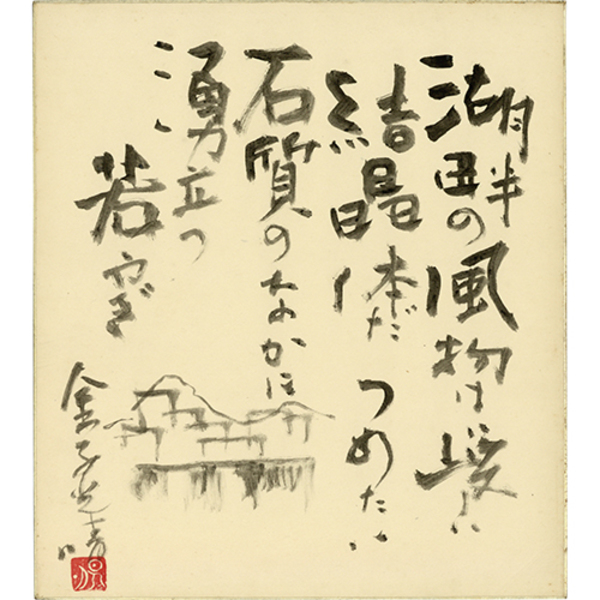 湖畔の風物は峻しい
結晶体だ つめたい
石質のなかに
湧立つ
若やぎ
金子光晴